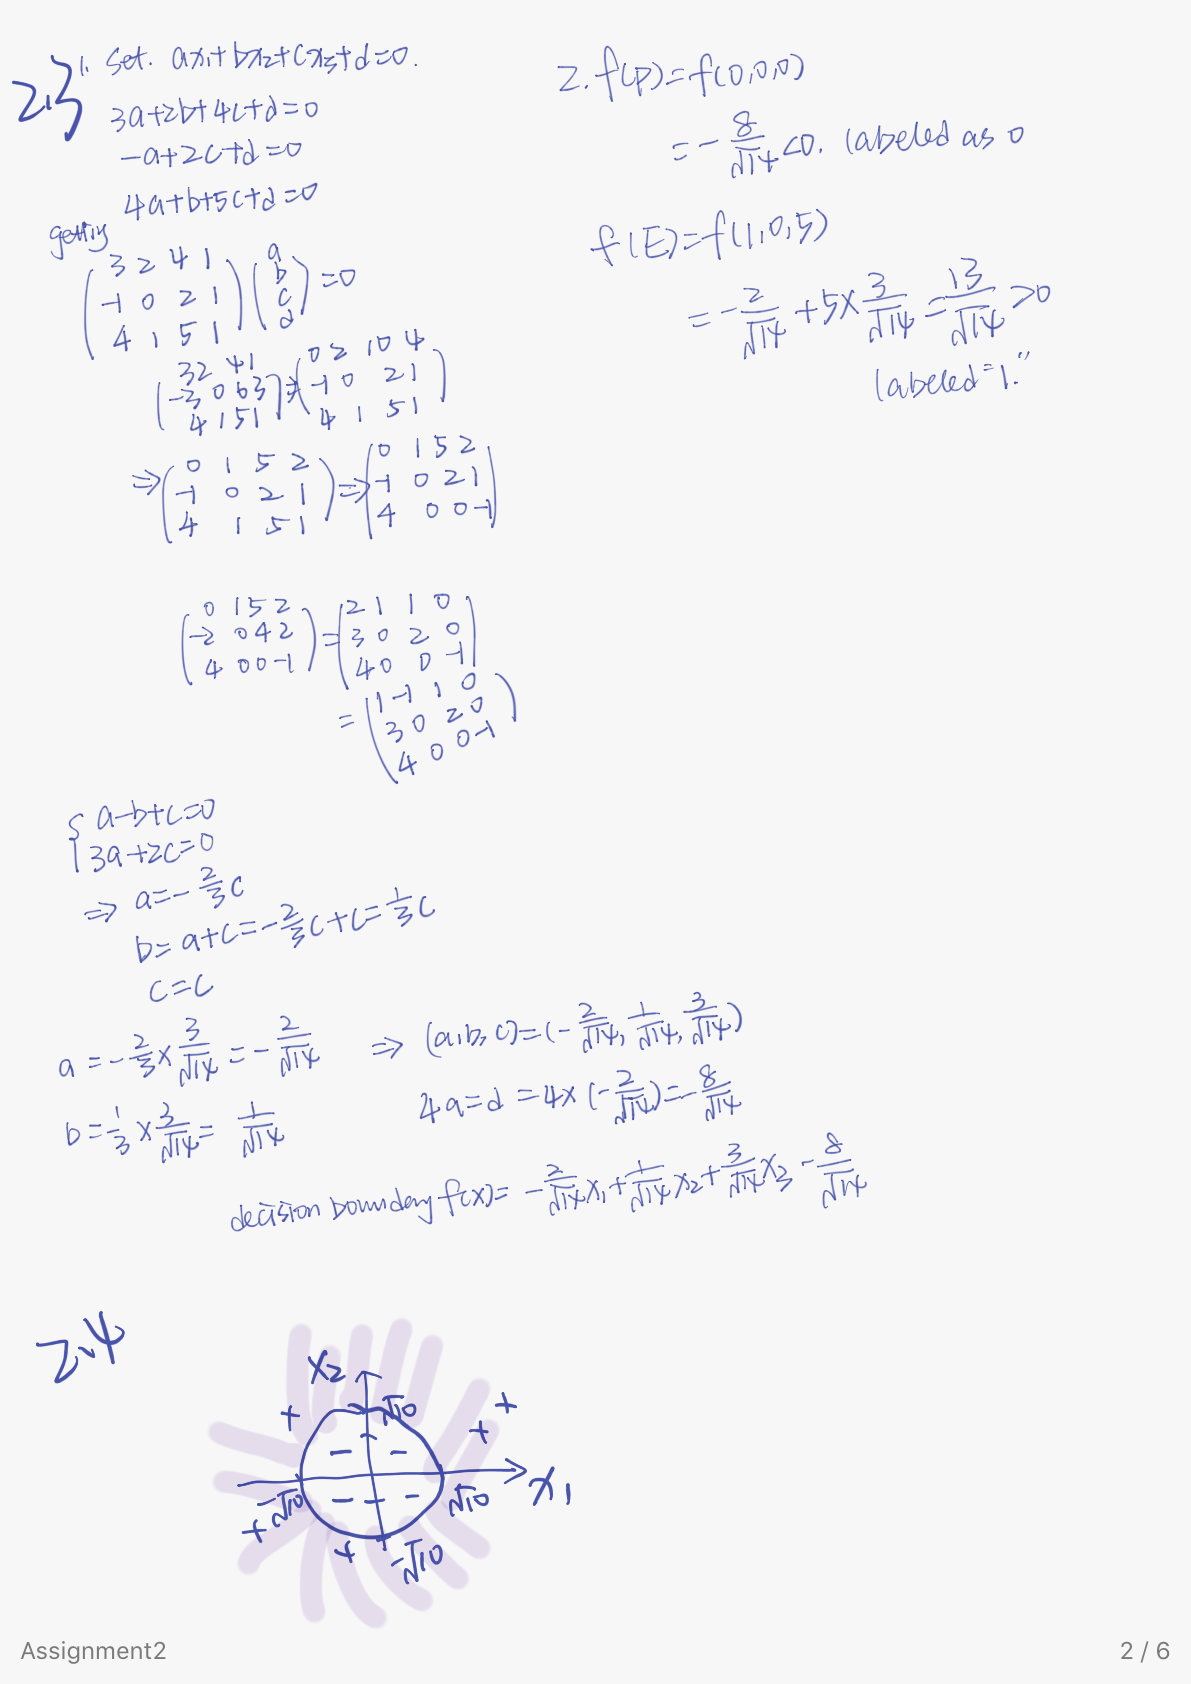 2.3
1. set. ax₁+bx₂+cx₃+d=0.
3a+2b+4c+d=0
-a+2c+d=0
4a+b+5c+d=0
getting
(3 2 4 1) (a)
(-1 0 2 1) (b) =0
(4 1 5 1) (c)
(d)
(3 2 4 1) (0 2 10 4)
(-3 0 6 3) ⇒ (-1 0 2 1)
(4 1 5 1) (4 1 5 1)
(0 1 5 2) (0 1 5 2)
⇒ (-1 0 2 1) ⇒ (-1 0 2 1)
(4 1 5 1) (4 0 0 -1)
(0 1 5 2) (2 1 1 0)
(-2 0 4 2) = (3 0 2 0)
(4 0 0 -1) (4 0 0 -1)
(1 -1 1 0)
= (3 0 2 0)
(4 0 0 -1)
{ a-b+c=0
3a+2c=0
⇒ a=-2/3 c
b=a+c=-2/3 c+c=1/3 c
c=c
a=-2/3×3/√14=-2/√14 ⇒ (a,b,c)=(-2/√14, 1/√14, 3/√14)
b=1/3×3/√14=1/√14
4a=d=4×(-2/√14)=-8/√14
decision boundary f(x)=-2/√14 x₁+1/√14 x₂+3/√14 x₃-8/√14
2. f(p)=f(0,0,0)
=-8/√14<0. labeled as 0
f(E)=f(1,0,5)
=-2/√14+5×3/√14=13/√14>0
labeled "1."
2.4
x₂
+ √10 +
+
- -
x₁
- - -
-√10 √10
+ + +
-√10
Assignment2
2 / 6